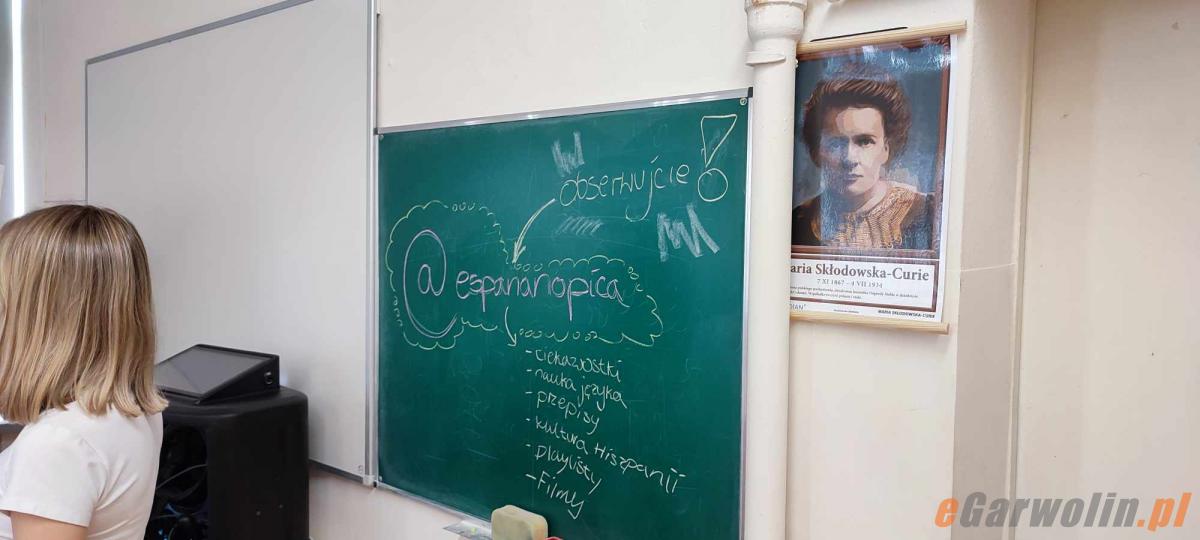 obserwujcie!
@espanariopica
- ciekawostki
- nauka języka
- przepisy
- kultura Hiszpanii
- playlisty
- Filmy
aria Skłodowska-Curie
7 XI 1867 - 4 VII 1934
MARIA SKŁODOWSKA-CURIE
eGarwolin.pl